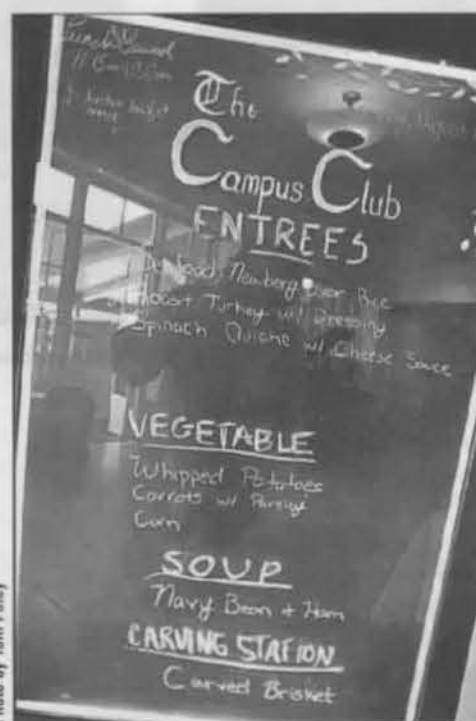 Lunch
The
Campus Club
ENTREES
Seafood Newberg over Rice
Roast Turkey w/ Dressing
Spinach Quiche w/ Cheese Sauce
VEGETABLE
Whipped Potatoes
Carrots w/ Parsley
Corn
SOUP
Navy Bean + Ham
CARVING STATION
Carved Brisket